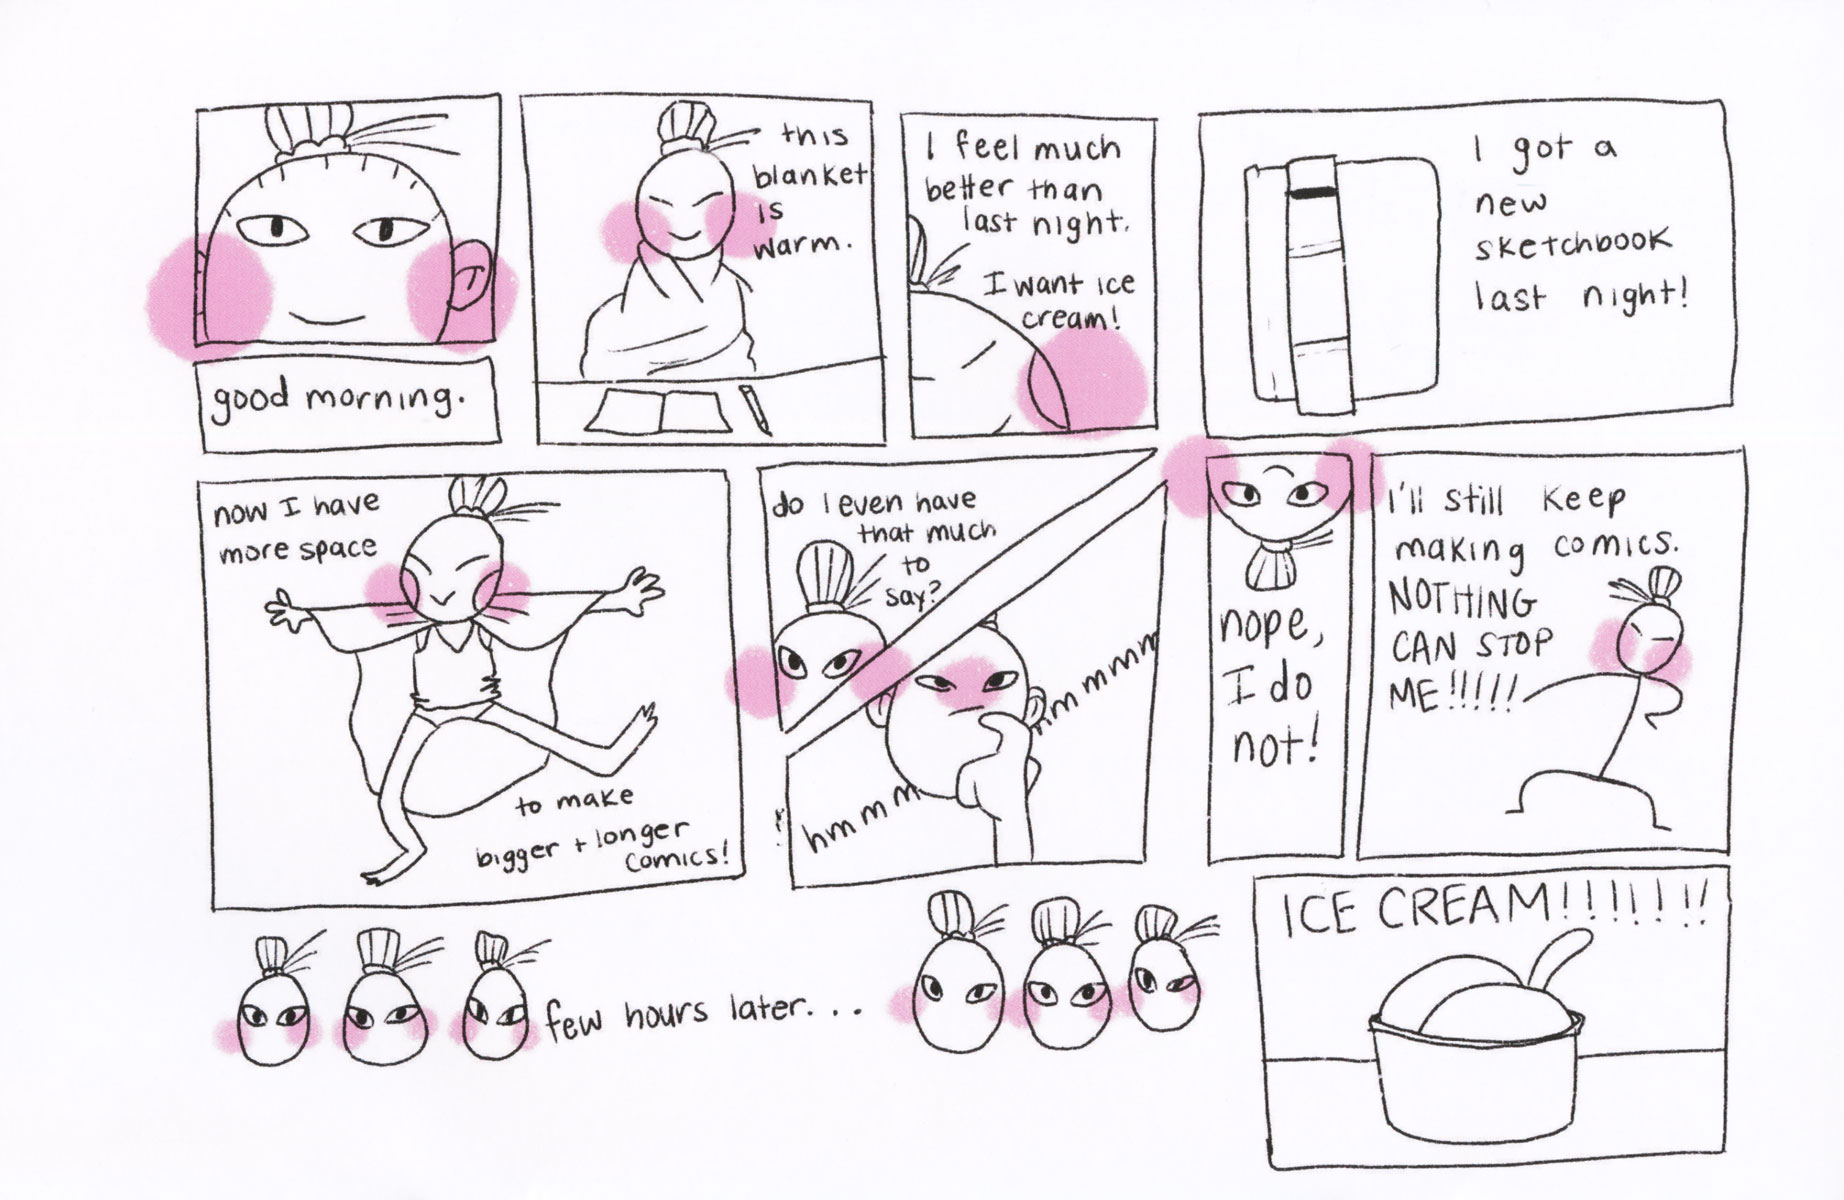 good morning.
this
blanket
is
warm.
I feel much
better than
last night.
I want ice
cream!
I got a
new
sketchbook
last night!
now I have
more space
to make
bigger + longer
comics!
do I even have
that much
to
say?
hmmmm
hmmmmm
nope,
I do
not!
I'll still keep
making comics.
NOTHING
CAN STOP
ME!!!!!
few hours later...
ICE CREAM!!!!!!!